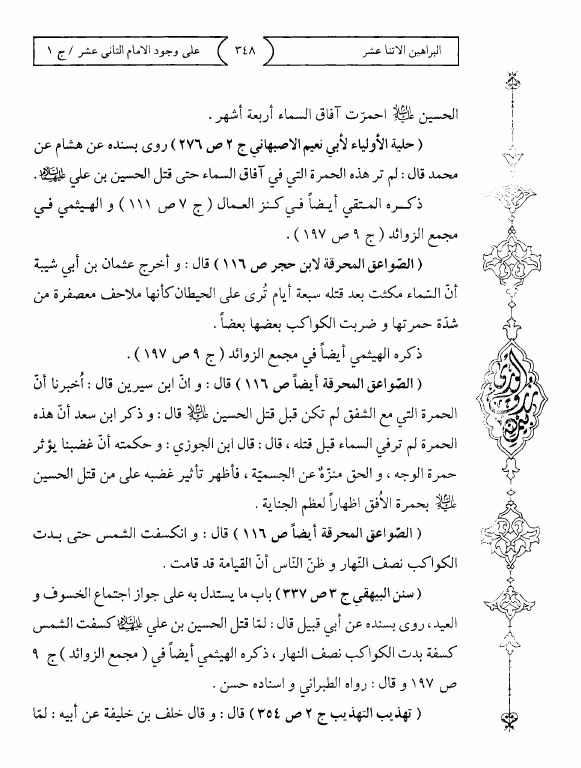 البراهين الاثنا عشر
٣٤٨
على وجود الامام الثانى عشر / ج ١
الحسين عليه السلام احمرّت آفاق السماء أربعة أشهر .
( حلية الأولياء لأبي نعيم الاصبهاني ج ٢ ص ٢٧٦ ) روى بسنده عن هشام عن
محمد قال : لم تر هذه الحمرة التي في آفاق السماء حتى قتل الحسين بن علي عليهما السلام .
ذكره المتقي أيضاً في كنز العمال ( ج ٧ ص ١١١ ) و الهيثمي في
مجمع الزوائد ( ج ٩ ص ١٩٧ ) .
( الصّواعق المحرقة لابن حجر ص ١١٦ ) قال : و أخرج عثمان بن أبي شيبة
أنّ السّماء مكثت بعد قتله سبعة أيام تُرى على الحيطان كأنها ملاحف معصفرة من
شدّة حمرتها و ضربت الكواكب بعضها بعضاً .
ذكره الهيثمي أيضاً في مجمع الزوائد ( ج ٩ ص ١٩٧ ) .
( الصّواعق المحرقة أيضاً ص ١١٦ ) قال : و انّ ابن سيرين قال : أُخبرنا أنّ
الحمرة التي مع الشفق لم تكن قبل قتل الحسين عليه السلام قال : و ذكر ابن سعد أنّ هذه
الحمرة لم ترفي السماء قبل قتله ، قال : قال ابن الجوزي : و حكمته أنّ غضبنا يؤثر
حمرة الوجه ، و الحق منزّهٌ عن الجسميّة ، فأظهر تأثير غضبه على من قتل الحسين
عليه السلام بحمرة الأُفق اظهاراً لعظم الجناية .
( الصّواعق المحرقة أيضاً ص ١١٦ ) قال : و انكسفت الشمس حتى بدت
الكواكب نصف النّهار و ظنّ النّاس أنّ القيامة قد قامت .
( سنن البيهقي ج ٣ ص ٣٣٧ ) باب ما يستدل به على جواز اجتماع الخسوف و
العيد، روى بسنده عن أبي قبيل قال : لمّا قتل الحسين بن علي عليهما السلام كسفت الشمس
كسفة بدت الكواكب نصف النهار ، ذكره الهيثمي أيضاً في ( مجمع الزوائد ) ج ٩
ص ١٩٧ و قال : رواه الطبراني و اسناده حسن .
( تهذيب التهذيب ج ٢ ص ٣٥٤ ) قال : و قال خلف بن خليفة عن أبيه : لمّا